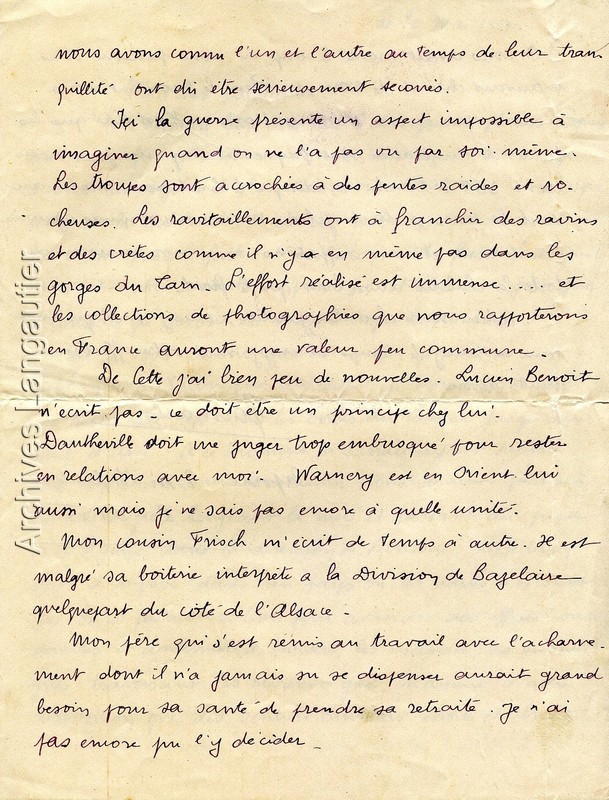 nous avons connu l'un et l'autre au temps de leur tran
quillité ont dû être sérieusement secoués.
Ici la guerre présente un aspect impossible à
imaginer quand on ne l'a pas vu par soi-même.
Les troupes sont accrochées à des pentes raides et ro-
cheuses. Les ravitaillements ont à franchir des ravins
et des crêtes comme il n'y a en même pas dans les
gorges du Tarn. L'effort réalisé est immense..... et
les collections de photographies que nous rapporterons
en France auront une valeur peu commune.
De Cette j'ai bien peu de nouvelles. Lucien Benoit
n'écrit pas - ce doit être un principe chez lui.
Dautheville doit me juger trop embusqué pour rester
en relations avec moi. Warnery est en Orient lui
aussi mais je ne sais pas encore à quelle unité.
Mon cousin Frisch m'écrit de temps à autre. Il est
malgré sa boiterie interprète a la Division de Bazelaire
quelquepart du côté de l'Alsace -
Mon père qui s'est remis au travail avec l'acharne-
ment dont il n'a jamais su se dispenser aurait grand
besoin pour sa santé de prendre sa retraite. Je n'ai
pas encore pu l'y décider -
Archives Langautier